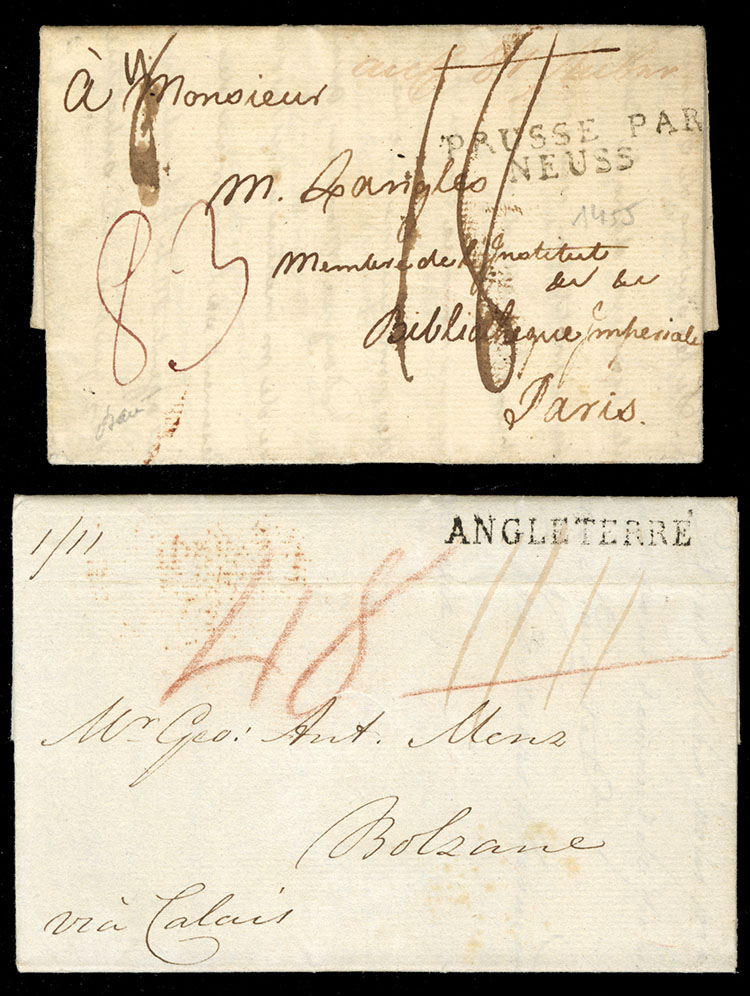 à Monsieur
PRUSSE PAR
NEUSS
M. Langlès
1455
Membre de l'Institut
83
&c &c
Bibliothèque Impériale
Paris.
1/11
ANGLETERRE
48
Mr. Geo: Ant. Menz
Bolzano
vià Calais